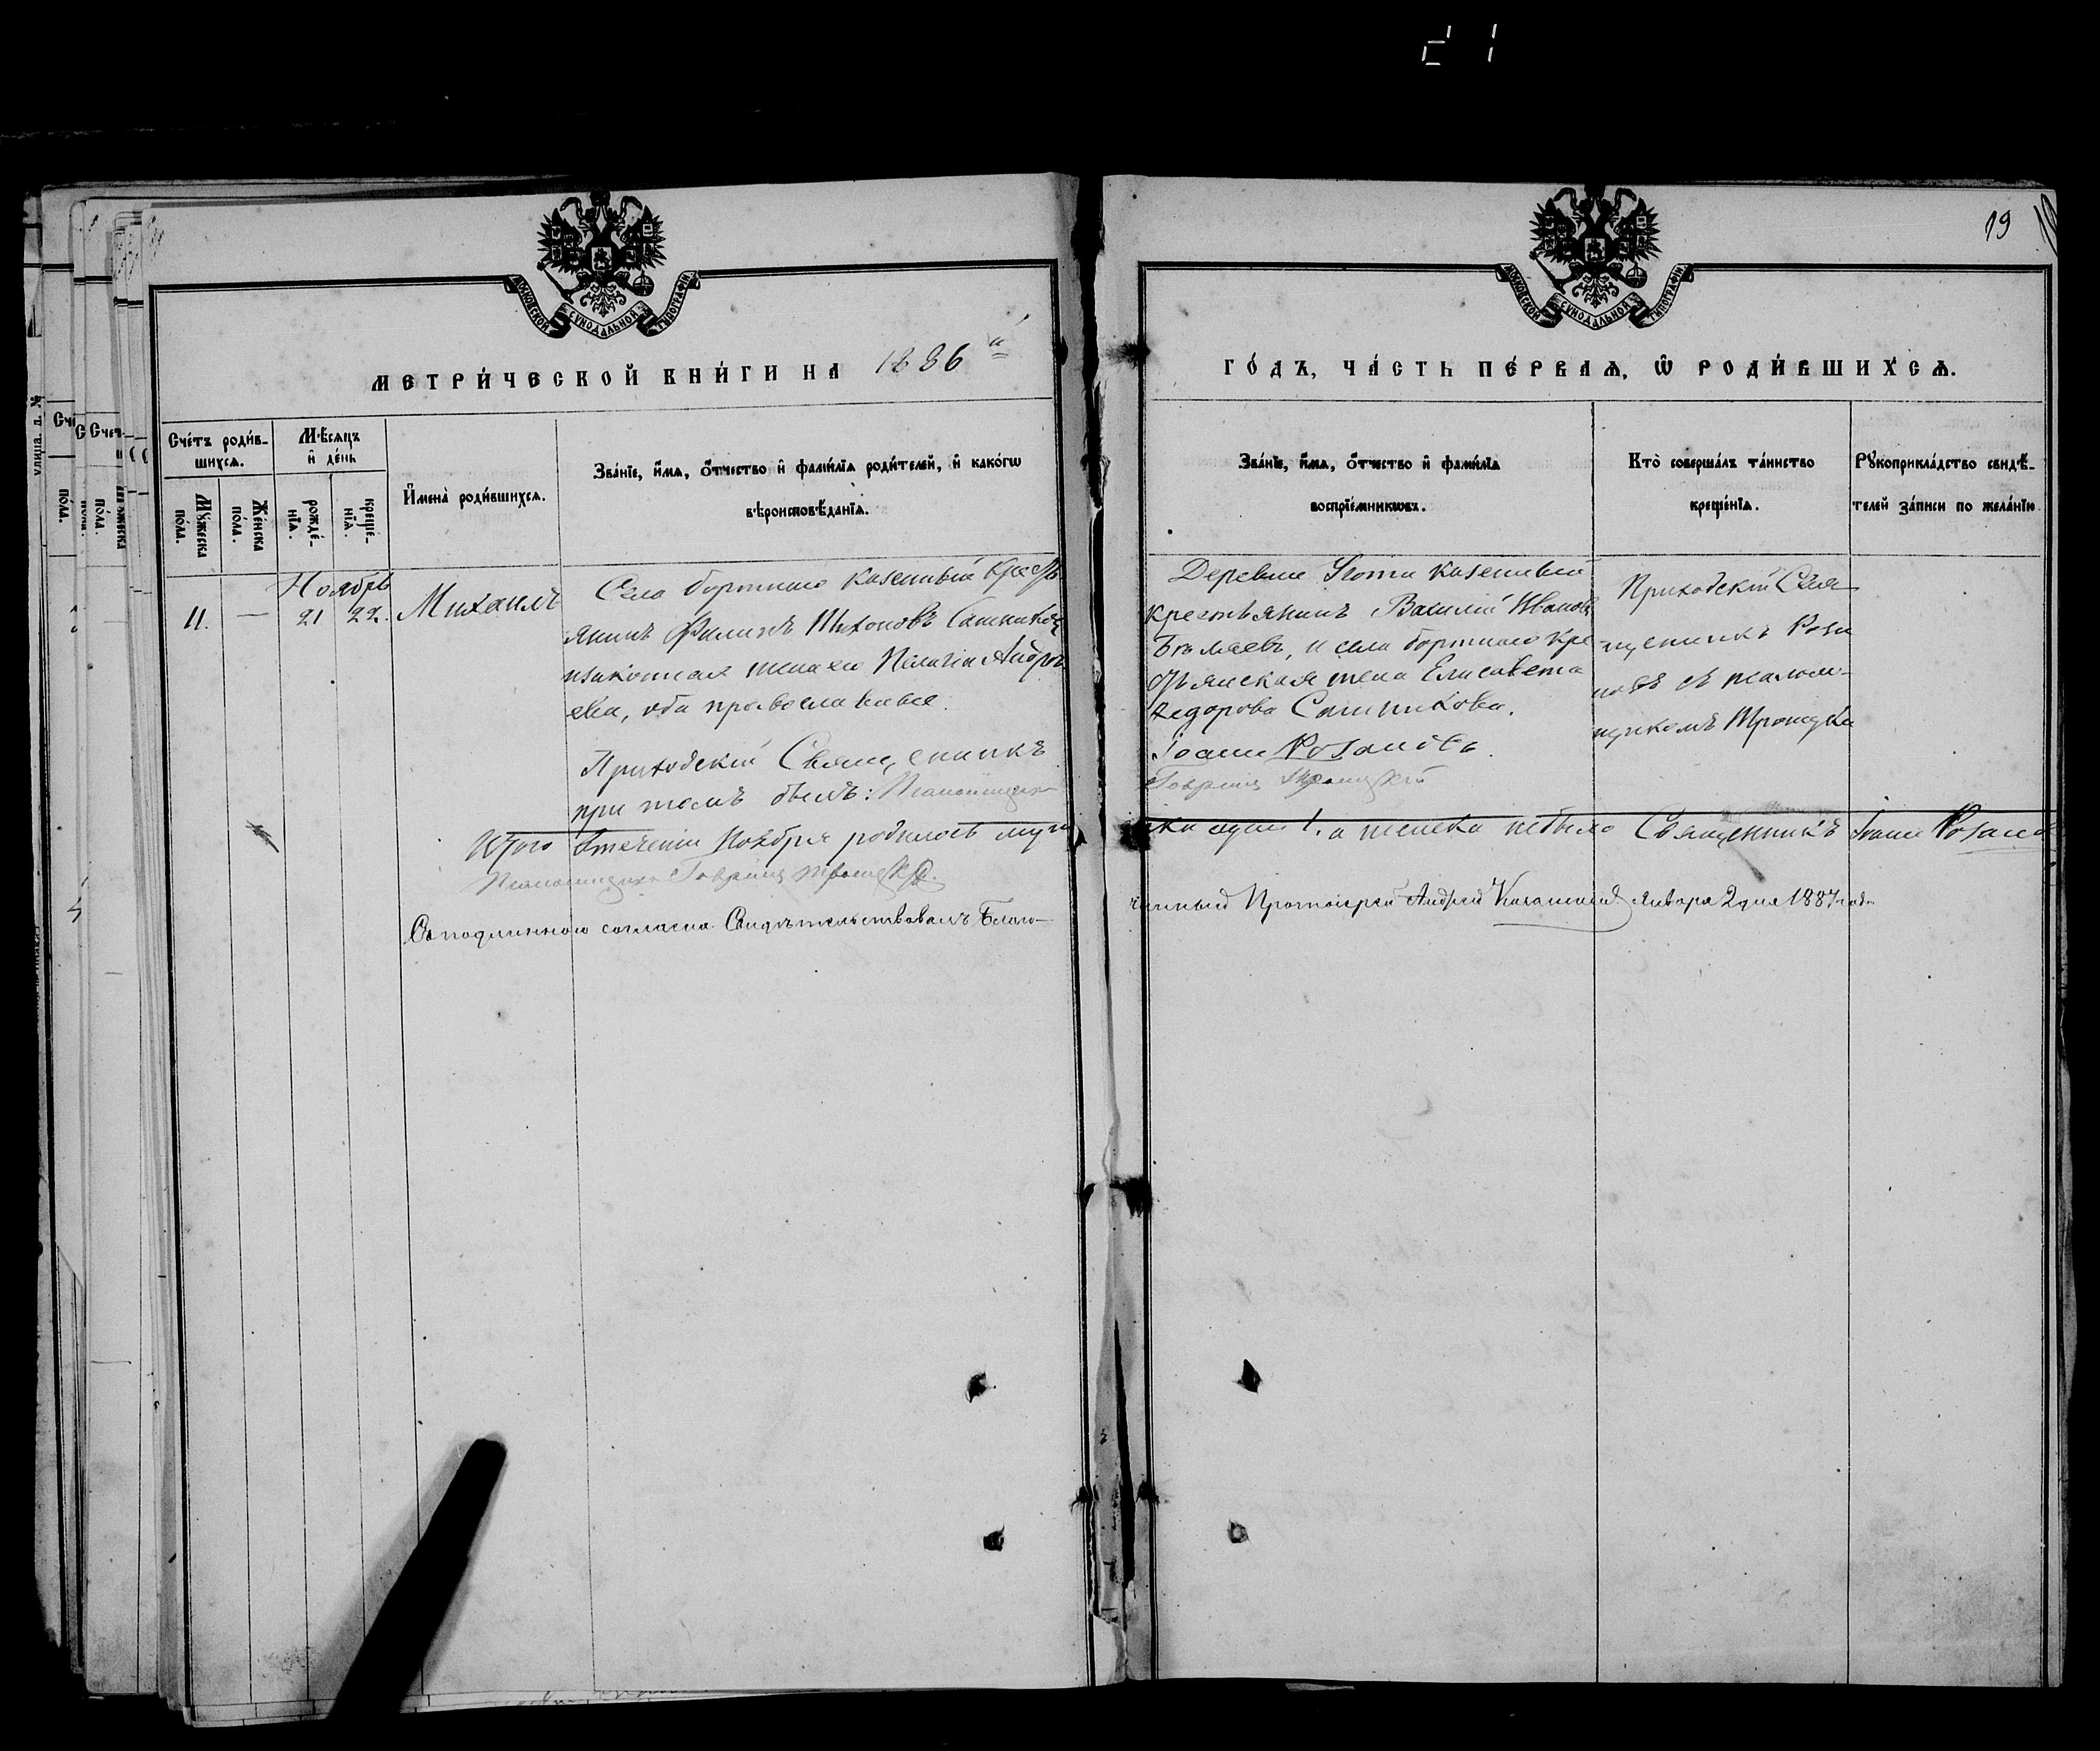 21
19
МОСКОВСКОЙ СѴНОДАЛЬНОЙ ТИПОГРАФІИ
МОСКОВСКОЙ СѴНОДАЛЬНОЙ ТИПОГРАФІИ
МЕТРИ́ЧЕСКОЙ КНИ́ГИ НА 1886 й
ГО́ДЪ, ЧА́СТЬ ПЕ́РВАѦ, Ѡ҆ РОДИ́ВШИХСѦ.
Сче́тъ роди́в-
шихсѧ.
Мꙋ́жеска
по́ла.
Же́нска
по́ла.
Мѣ́сѧцъ
и҆ де́нь
рожде́-
нїѧ.
креще́-
нїѧ.
И҆мена̀ роди́вшихсѧ.
Зва́нїе, и҆́мѧ, ѻ҆́тчество и҆ фамилїа роди́телей, и҆ како́гѡ
вѣроисповѣ́данїѧ.
Зва́нїе, и҆́мѧ, ѻ҆́тчество и҆ фами́лїа
воспрїе́мникѡвъ.
Кто̀ соверша́лъ та́инство
креще́нїѧ.
Рꙋкоприкла́дство свидѣ́-
телей за́писи по жела́нїю
Ноябрь
11. — 21 22. Михаилъ
Села Бортнаго казенный кресть
янинъ Филипъ Тихоновъ Сатников
и законная жена его Пелагія Андре
ева, оба православные.
Приходскій Священникъ
при томъ былъ: Псаломщикъ
Деревни казенный
крестьянинъ Василій Ивановъ
и села Бортнаго кре
стьянская жена Елисавета
Федорова Сатникова.
Іоаннъ Розановъ.
Гавріилъ Троицкій
Приходскій Свя
щенникъ Роза
новъ съ псалом-
щикомъ Троицки
Итого въ теченіи Ноября родилось муж
ска одинъ 1. а женска небыло Священникъ Іоаннъ Розановъ
Псаломщикъ Гавріилъ Троицкій.
Съ подлиннымъ согласно Свидѣтельствовалъ Благо-
чинный Протоіерей Андрей января 2 дня 1887 года